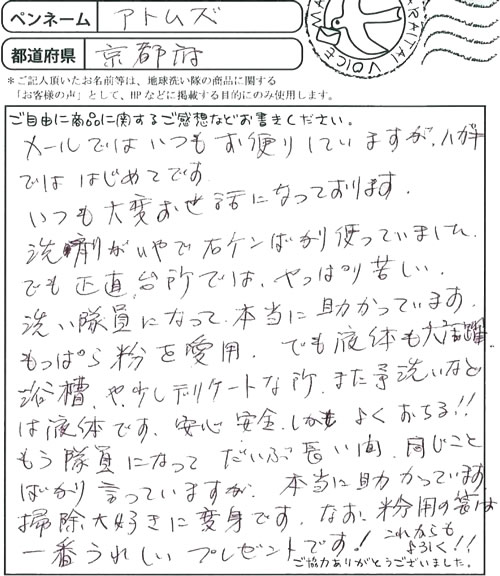 ペンネーム アトムズ
都道府県 京都府
＊ご記入頂いたお名前等は、地球洗い隊の商品に関する
「お客様の声」として、HPなどに掲載する目的にのみ使用します。
ご自由に商品に関するご感想などお書きください。
メールではいつもお便りしていますが、ハガキ
では はじめてです.
いつも大変お世話になっております.
洗剤がいやで石ケンばかり使っていました.
でも正直、台所では、やっぱり苦しい.
洗い隊員になって、本当に助かっています.
もっぱら粉を愛用. でも液体も大活躍..
浴槽、や、少しデリケートな所、また予洗いなど
は液体です. 安心 安全 しかも よくおちる!!
もう隊員になって だいぶ長い間、同じこと
ばかり言っていますが、本当に助かっています
掃除大好きに変身です. なお、粉用の筈は
一番うれしい プレゼントです! これからも
よろしく!!
ご協力ありがとうございました。